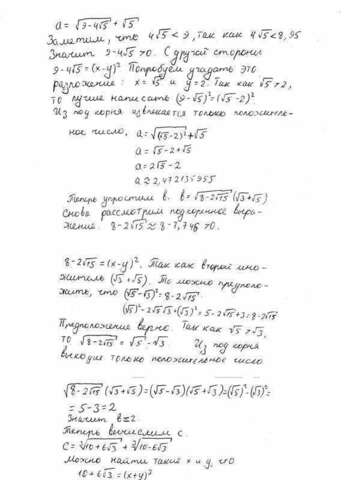 a = √(9-4√5) + √5
Заметим, что 4√5 < 9, так как 4√5 < 8,95
Значит 9-4√5 > 0. С другой стороны
9-4√5 = (x-y)² Попробуем угадать это
разложение: x = √5 и y = 2. Так как √5 > 2,
то лучше написать (9-√5)² = (√5-2)².
Из под корня извлекается только положитель-
ное число. a = √(√5-2)² + √5
a = √5-2+√5
a = 2√5-2
a ≈ 2,472135955
Теперь упростим b. b = √(8-2√15) (√3+√5)
Снова рассмотрим подкоренное выра-
жение. 8-2√15 ≈ 8-7,746 > 0.
8-2√15 = (x-y)². Так как второй мно-
житель (√3+√5). То можно предполо-
жить, что (√5-√3)² = 8-2√15
(√5)²-2√5√3+(√3)² = 5-2√15+3 = 8-2√15
Предположение верно. Так как √5 > √3,
то √(8-2√15) = √5-√3. Из под корня
выходит только положительное число
√(8-2√15) (√3+√5) = (√5-√3)(√5+√3) = (√5)²-(√3)² =
= 5-3 = 2
Значит b = 2.
Теперь вычислим c.
c = ³√(10+6√3) + ³√(10-6√3)
Можно найти такие x и y, что
10+6√3 = (x+y)³